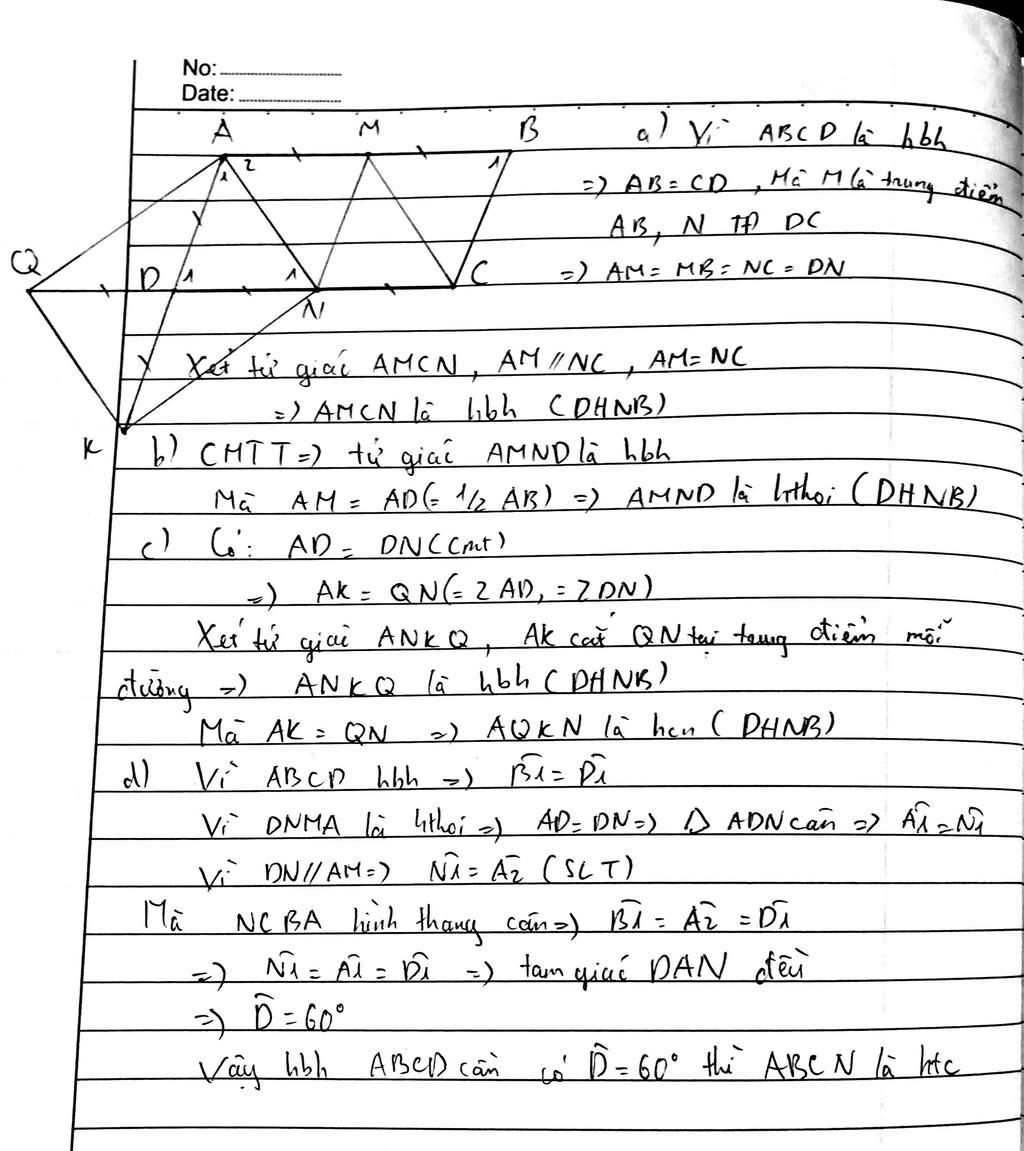 No:
Date:
A M B
2 1 1
Q D 1 1 N C
K
a) Vì ABCD là hbh
=> AB = CD , Mà M là trung điểm
AB, N TĐ DC
=> AM = MB = NC = DN
Xét tứ giác AMCN, AM // NC, AM = NC
=> AMCN là hbh (DHNB)
b) CMTT => tứ giác AMND là hbh
Mà AM = AD (= 1/2 AB) => AMND là hthoi (DHNB)
c) Có: AD = DN (cmt)
=> AK = QN (= 2 AD, = 2 DN)
Xét tứ giác ANKQ, AK cắt QN tại trung điểm mỗi
đường => ANKQ là hbh (DHNB)
Mà AK = QN => AQKN là hcn (DHNB)
d) Vì ABCD hbh => B̂1 = D̂1
Vì DNMA là hthoi => AD = DN => Δ ADN cân => Â1 = N̂1
Vì DN // AM => N̂1 = Â2 (SLT)
Mà NCBA hình thang cân => B̂1 = Â2 = D̂1
=> N̂1 = Â1 = D̂1 => tam giác DAN đều
=> D̂ = 60°
Vậy hbh ABCD cần có D̂ = 60° thì ABCN là htc